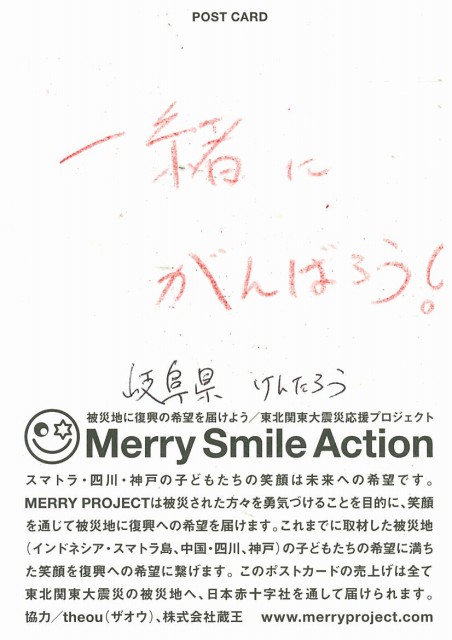 POST CARD
一緒に
がんばろう!
岐阜県 けんたろう
被災地に復興の希望を届けよう/東北関東大震災応援プロジェクト
Merry Smile Action
スマトラ・四川・神戸の子どもたちの笑顔は未来への希望です。
MERRY PROJECTは被災された方々を勇気づけることを目的に、笑顔
を通じて被災地に復興への希望を届けます。これまでに取材した被災地
(インドネシア・スマトラ島、中国・四川、神戸)の子どもたちの希望に満ち
た笑顔を復興への希望に繋げます。このポストカードの売上げは全て
東北関東大震災の被災地へ、日本赤十字社を通して届けられます。
協力/theou(ザオウ)、株式会社蔵王 www.merryproject.com